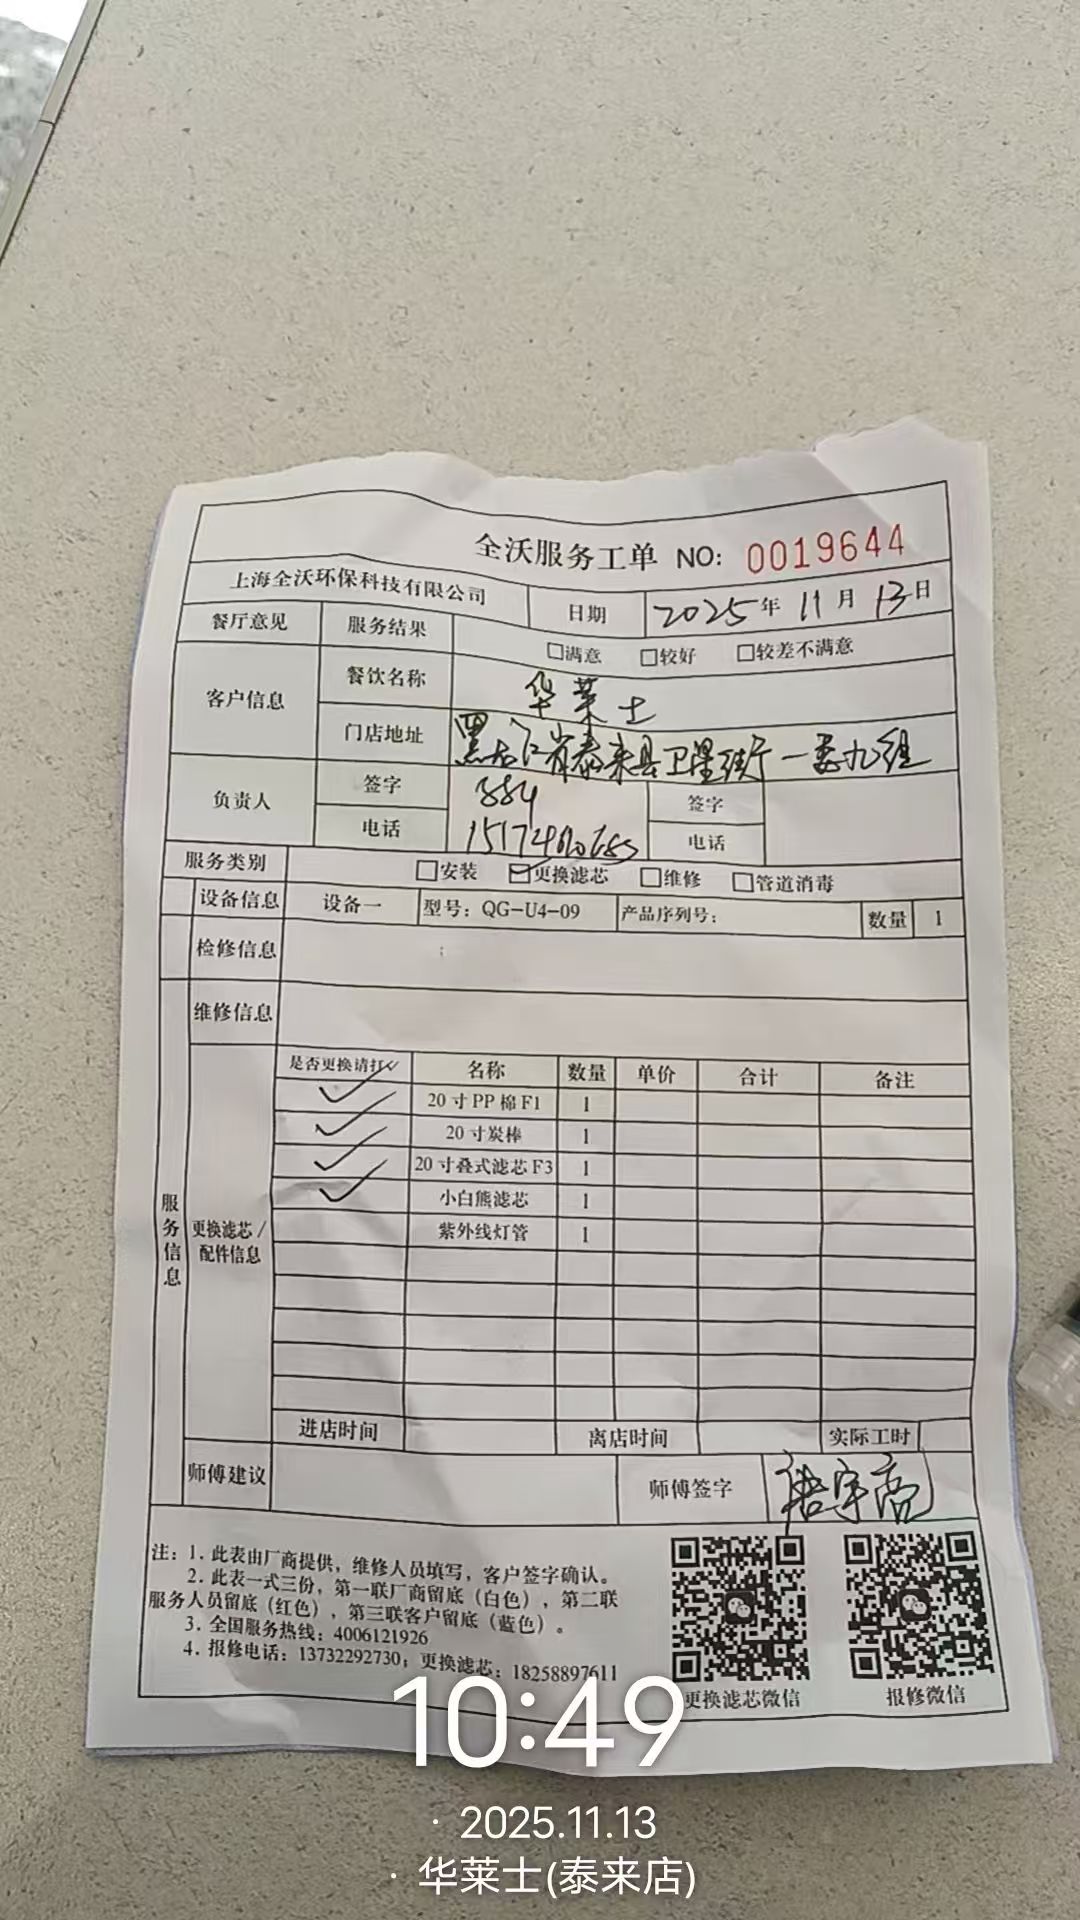 全沃服务工单 NO: 0019644
上海全沃环保科技有限公司 日期 2025年 11月 13日
餐厅意见 服务结果 □满意 □较好 □较差不满意
客户信息 餐饮名称 华莱士
门店地址 黑龙江省泰来县卫星街厅一委九组
负责人 签字 签字
电话 电话
服务类别 □安装 ☑更换滤芯 □维修 □管道消毒
设备信息 设备一 型号：QG-U4-09 产品序列号： 数量 1
检修信息
维修信息
服务信息 更换滤芯/配件信息
是否更换请打✓ 名称 数量 单价 合计 备注
✓ 20寸PP棉F1 1
✓ 20寸炭棒 1
✓ 20寸叠式滤芯F3 1
✓ 小白熊滤芯 1
紫外线灯管 1
进店时间 离店时间 实际工时
师傅建议 师傅签字
注：1. 此表由厂商提供，维修人员填写，客户签字确认。
2. 此表一式三份，第一联厂商留底（白色），第二联
服务人员留底（红色），第三联客户留底（蓝色）。
3. 全国服务热线：4006121926
4. 报修电话：13732292730；更换滤芯：18258897611
更换滤芯微信 报修微信
10:49
· 2025.11.13
· 华莱士(泰来店)